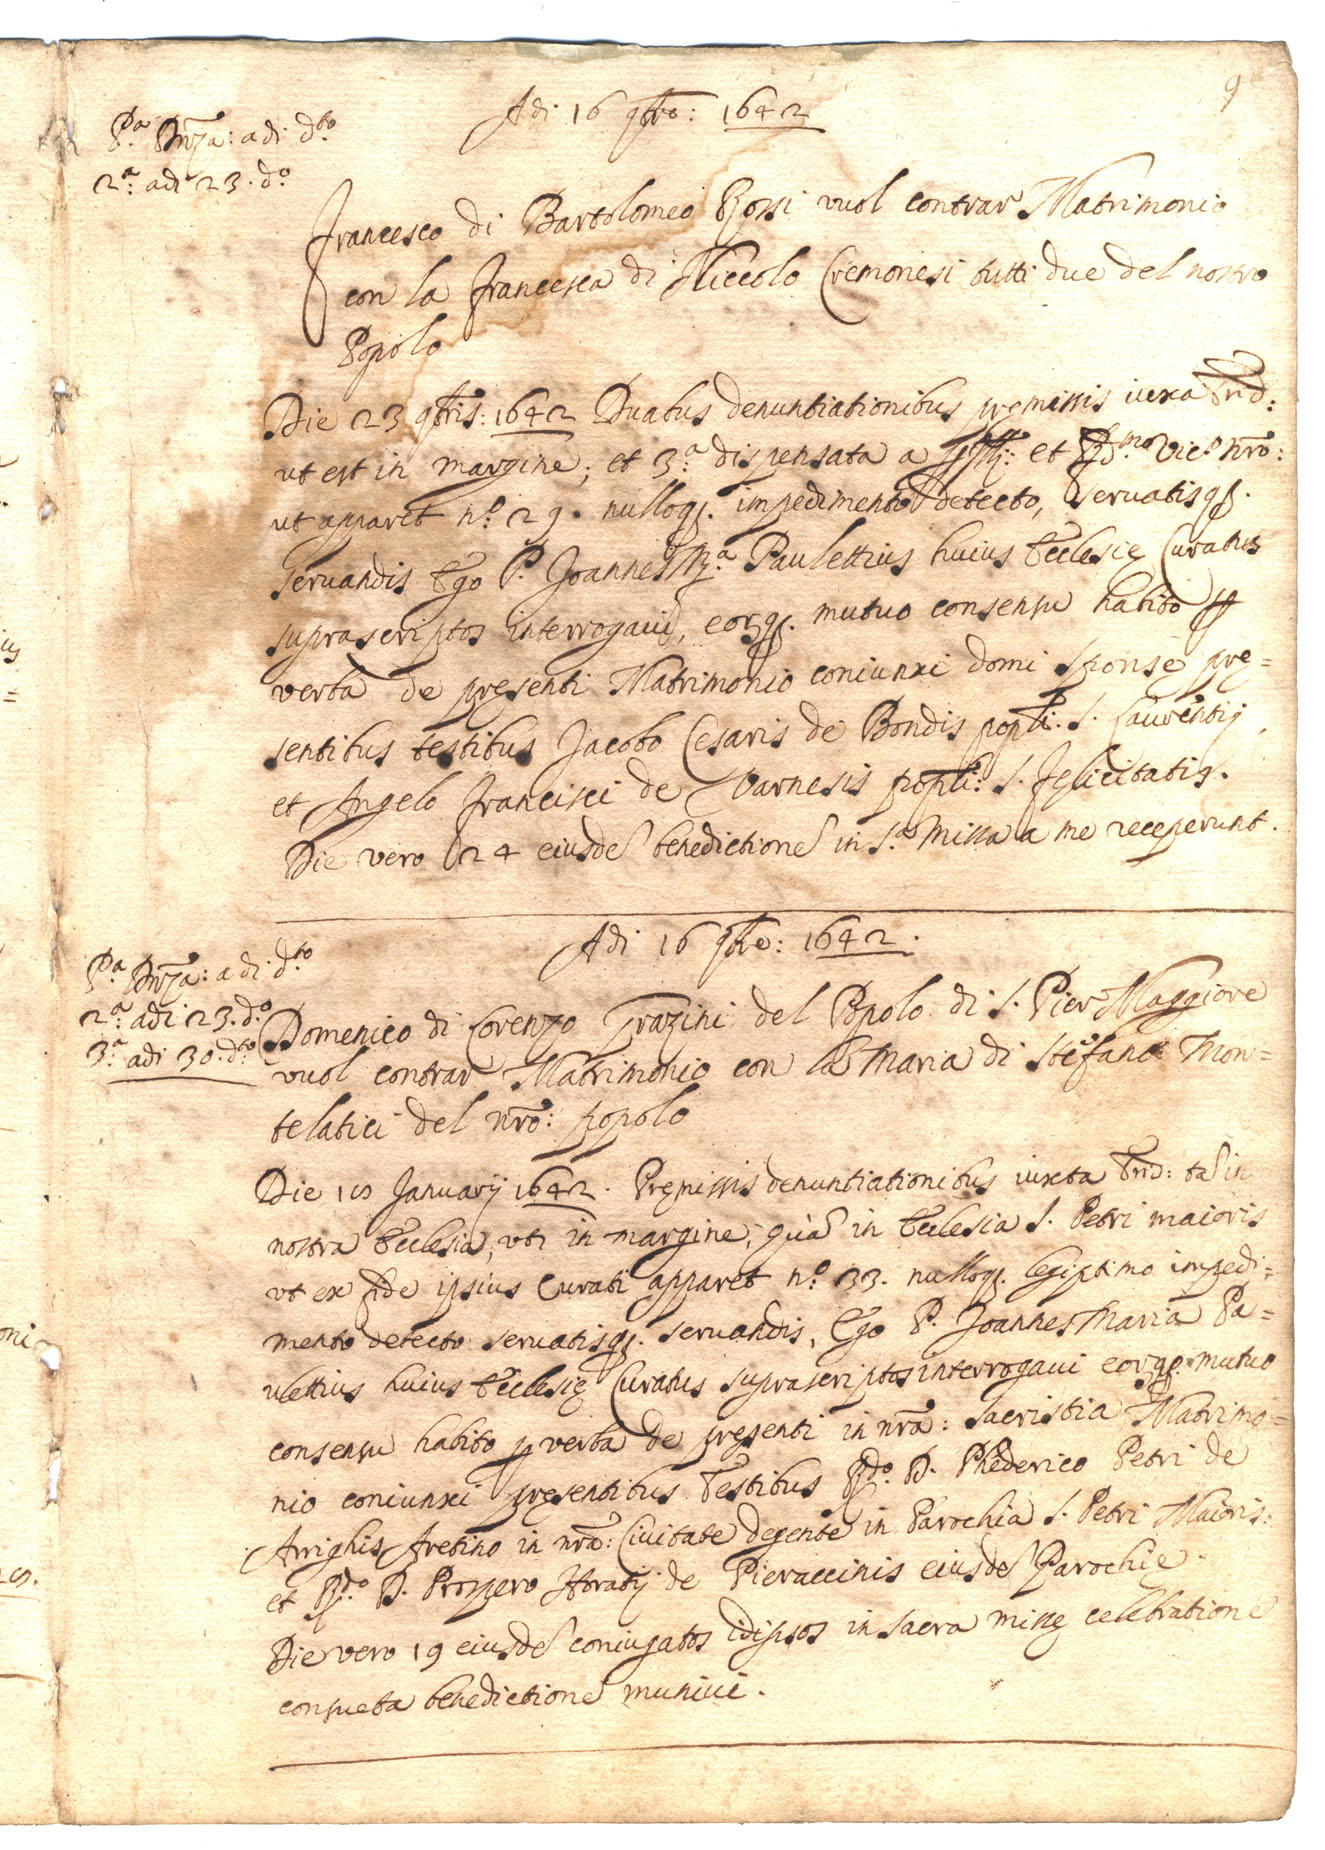 9
Adi 16 9bre: 1642
Pa. Dnza: adi dto
2a. adi 23. do.
Francesco di Bartolomeo Rossi vuol contrar Matrimonio
con la Francesca di Niccolo Cremonesi tutti due del nostro
Popolo
Die 23 9bris: 1642 Duabus denuntiationibus premissis iuxa Trid:
ut est in margine; et 3.a dispensata a et Rd.mo Vic.o nrõ:
ut apparet n.o 29. nulloq. impedimento detecto, servatisq.
servandis Ego P. Joannes Ma. Paulettius huius Ecclesię Curatus
suprascriptos interrogavi, eorq. mutuo consensu habito p
verba de pręsenti Matrimonio coniunxi domi sponsę prę=
sentibus testibus Jacobo Cesaris de Bondis popli. S. Laurentij,
et Angelo Francisci de Varnesis popli: S. Felicitatis.
Die vero 24 eiusdẽ benedictionẽ in S.a Missa a me receperunt.
Adi 16 9bre: 1642.
Pa. Dnza: adi dto
2a. adi 23. do.
3a. adi 30. dto
Domenico di Lorenzo Grazini del Popolo di S. Pier Maggiore
vuol contrar Matrimonio con la Maria di Stefano Mon=
telatici del nrõ: popolo
Die 18 Januarij 1642. Pręmissis denuntiationibus iuxta Trid: tã in
nostra Ecclesia, uti in margine, quã in Ecclesia S. Petri maioris
ut ex fide ipsius Curati apparet n.o 33. nulloq. legiptimo impedi=
mento detecto servatisq. servandis, Ego P. Joannes Maria Pa=
ulettius huius Ecclesię Curatus suprascriptos interrogavi eorq. mutuo
consensu habito p verba de pręsenti in nrã: sacristia Matrimo=
nio coniunxi pręsentibus Testibus Rdo. D. Phederico Petri de
Arrighis Aretino in nrã: Civitate degente in Parochia S. Petri Maioris:
et Rdo. D. Prospero Horatij de Pieraccinis eiusdẽ Parochię.
Die vero 19 eiusdẽ coniugatos idipsos in sacra missę celebratione
consueta benedictione munivi.